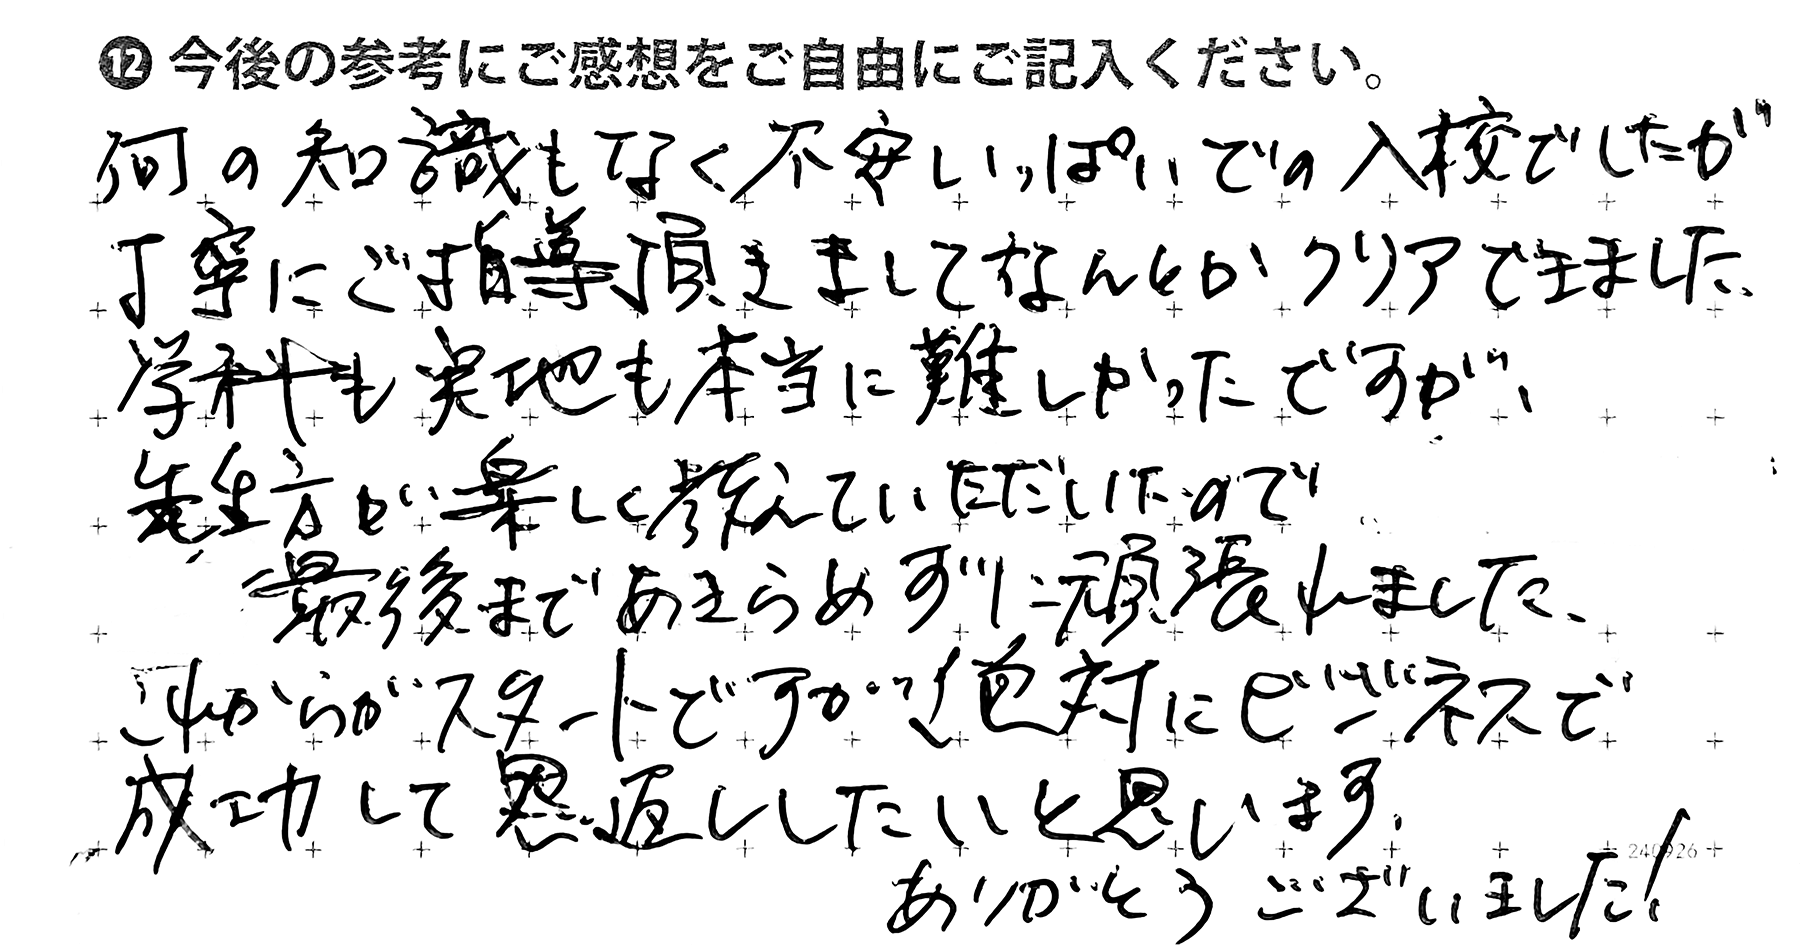 ⓬今後の参考にご感想をご自由にご記入ください。
何の知識もなく不安いっぱいでの入校でしたが
丁寧にご指導頂きましてなんとかクリアできました。
学科も実地も本当に難しかったですが、
先生方が楽しく教えていただいたので
最後まであきらめずに頑張れました。
これからがスタートですが絶対にビジネスで
成功して恩返ししたいと思います。
240926
ありがとうございました!